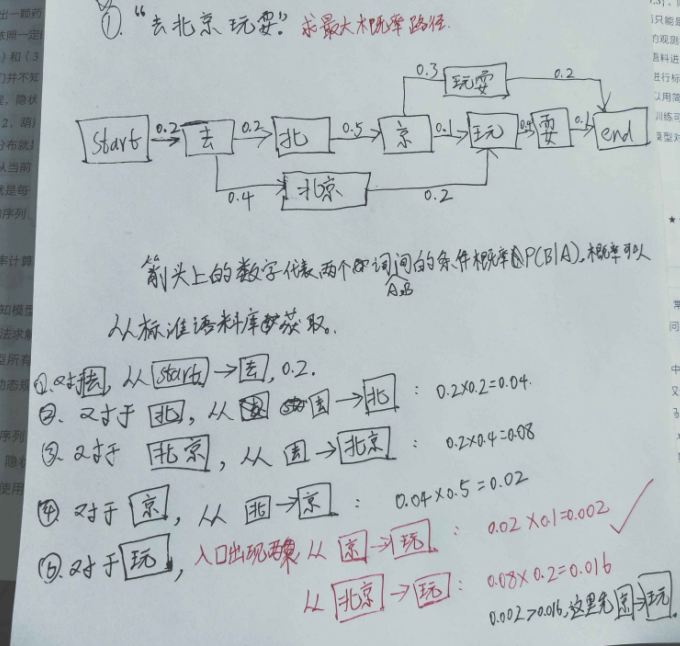 ①. “去北京玩耍.” 求最大概率路径.
0.3 玩耍 0.2
start 0.2 去 0.2 北 0.5 京 0.1 玩 耍 0.1 end
0.4 北京 0.2
箭头上的数字代表两个词间的条件概率P(B|A).概率可以
A,B
从标准语料库获取。
①.对于去, 从start→去, 0.2.
②. 对于北, 从去→北 : 0.2×0.2=0.04.
③. 对于北京, 从去→北京 : 0.2×0.4=0.08
④. 对于京, 从北→京 : 0.04×0.5=0.02
⑤.对于玩, 入口出现两条, 从京→玩 : 0.02×0.1=0.002
从北京→玩 : 0.08×0.2=0.016
0.002>0.016,这里先京→玩.